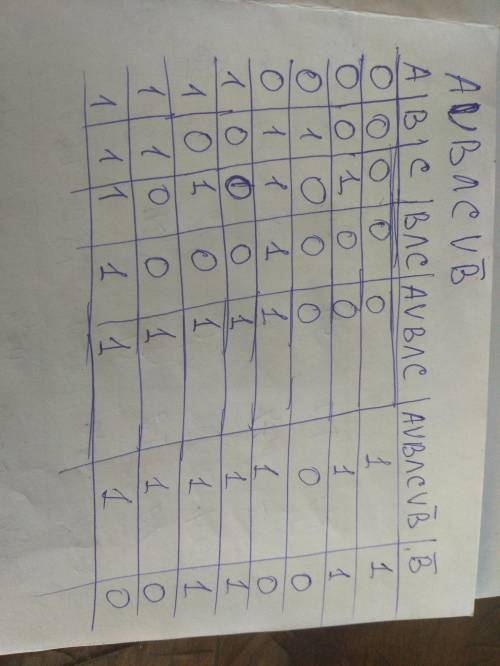 A ∨ B ∧ C ∨ B̄
A | B | C | B∧C | A∨B∧C | A∨B∧C∨B̄ | B̄
0 0 0 0 0 1 1
0 0 1 0 0 1 1
0 1 0 0 0 0 0
0 1 1 1 1 1 0
1 0 0 0 1 1 1
1 0 1 0 1 1 1
1 1 0 0 1 1 0
1 1 1 1 1 1 0